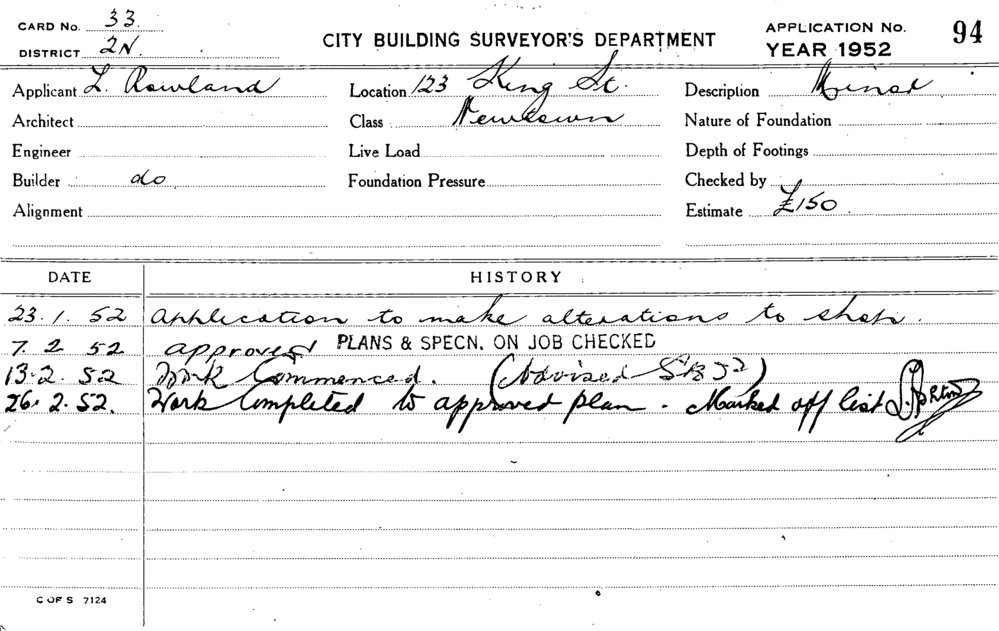 CARD No. 33
DISTRICT 2N.
CITY BUILDING SURVEYOR'S DEPARTMENT
APPLICATION No. 94
YEAR 1952
Applicant L. Rowland
Location 123 King St.
Description Minor
Architect
Class Newtown
Nature of Foundation
Engineer
Live Load
Depth of Footings
Builder do
Foundation Pressure
Checked by
Alignment
Estimate £150
DATE HISTORY
23.1.52 Application to make alterations to shop.
7.2.52 approved PLANS & SPECN. ON JOB CHECKED
13.2.52 Work Commenced. (Advised
26.2.52. Work Completed to approved plan. Marked off list
C OF S 7124